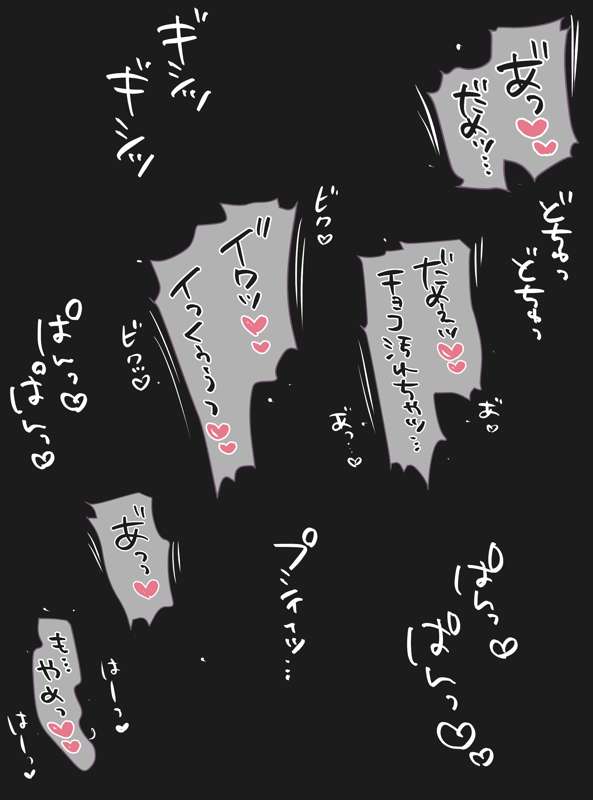 あ゙っ♡♡
だめッ…
どちゅっ
どちゅっ
ギシッ
ギシッ
だめぇッ♡♡
チョコ汚れちゃッ…
あ゙♡
あ゙っ…♡
ビク♡
イ゙クッ♡♡
イっくぅうっ♡♡
ビクッ♡
ぱんっ♡
ぱんっ♡
ぱんっ♡
ぱんっ♡♡
プシィッ…
あ゙っっ♡
も…
やめっ♡♡
はーっ♡
はーっ♡